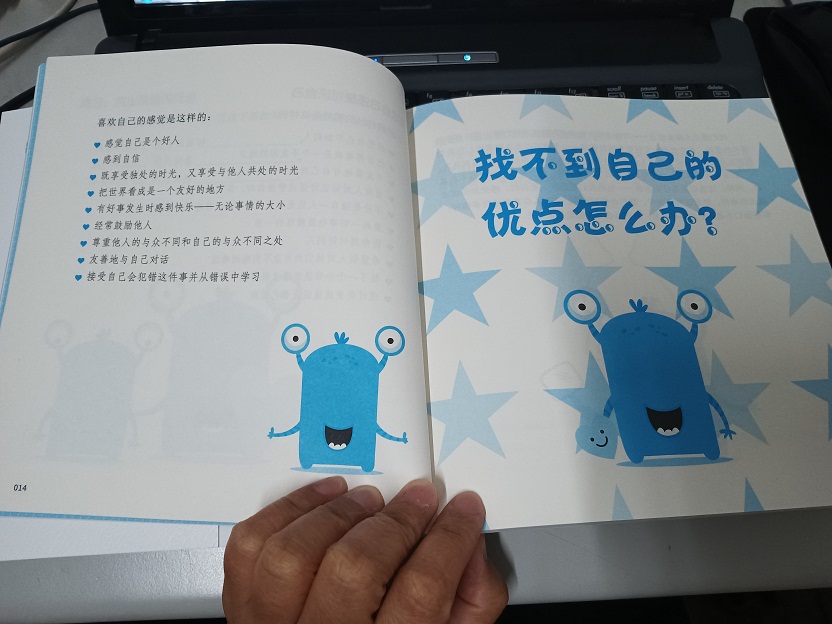 喜欢自己的感觉是这样的：
感觉自己是个好人
感到自信
既享受独处的时光，又享受与他人共处的时光
把世界看成是一个友好的地方
有好事发生时感到快乐——无论事情的大小
经常鼓励他人
尊重他人的与众不同和自己的与众不同之处
友善地与自己对话
接受自己会犯错这件事并从错误中学习
014
找不到自己的
优点怎么办？
scroll
pause
insert
delete